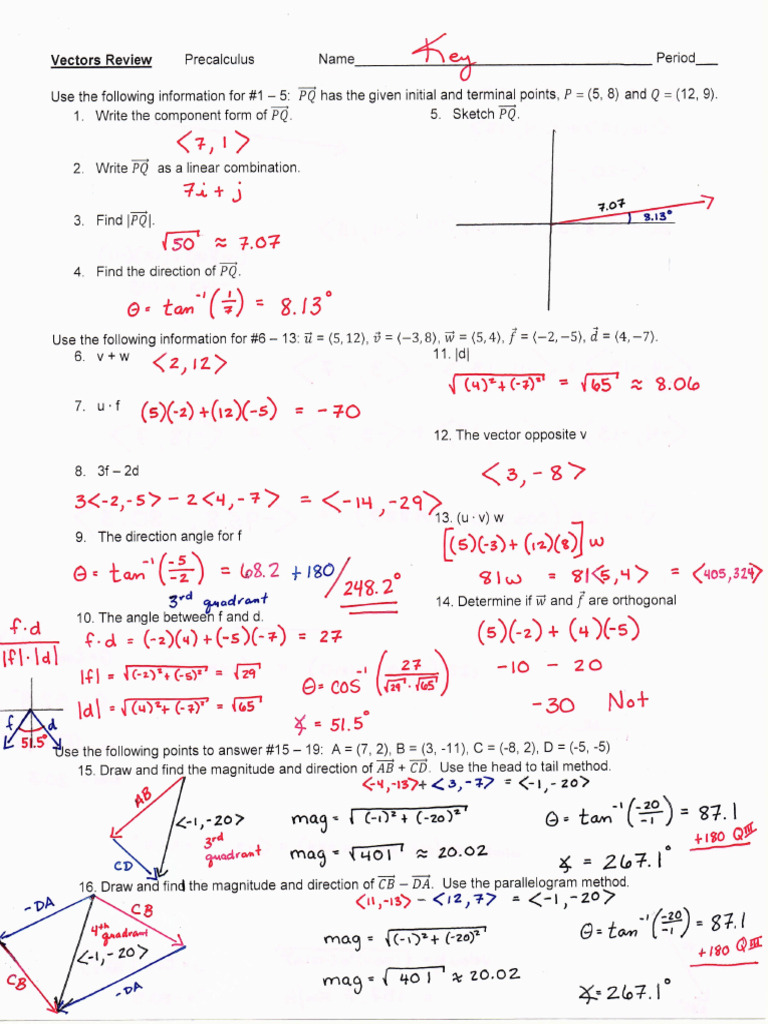 Vectors Review Precalculus Name Key Period
Use the following information for #1 – 5: PQ⃗ has the given initial and terminal points, P = (5, 8) and Q = (12, 9).
1. Write the component form of PQ⃗.
<7, 1>
2. Write PQ⃗ as a linear combination.
7i + j
3. Find |PQ⃗|.
√50 ≈ 7.07
4. Find the direction of PQ⃗.
θ = tan⁻¹(1/7) = 8.13°
5. Sketch PQ⃗.
7.07
8.13°
Use the following information for #6 – 13: u⃗ = ⟨5, 12⟩, v⃗ = ⟨−3, 8⟩, w⃗ = ⟨5, 4⟩, f⃗ = ⟨−2, −5⟩, d⃗ = ⟨4, −7⟩.
6. v + w
<2, 12>
7. u · f
(5)(-2)+(12)(-5) = -70
8. 3f – 2d
3<-2,-5> - 2<4,-7> = <-14, -29>
9. The direction angle for f
θ = tan⁻¹(-5/-2) = 68.2 +180 / 248.2°
3rd quadrant
10. The angle between f and d.
f·d
|f|·|d|
f·d = (-2)(4)+(-5)(-7) = 27
|f| = √(-2)²+(-5)² = √29
|d| = √(4)²+(-7)² = √65
θ = cos⁻¹(27/√29·√65)
∡ = 51.5°
f d
51.5°
11. |d|
√(4)²+(-7)² = √65 ≈ 8.06
12. The vector opposite v
<3, -8>
13. (u · v) w
[(5)(-3)+(12)(8)] w
81w = 81<5,4> = <405,324>
14. Determine if w⃗ and f⃗ are orthogonal
(5)(-2) + (4)(-5)
-10 - 20
-30 Not
Use the following points to answer #15 – 19: A = (7, 2), B = (3, -11), C = (-8, 2), D = (-5, -5)
15. Draw and find the magnitude and direction of AB⃗ + CD⃗. Use the head to tail method.
<-4,-13>+<3,-7> = <-1,-20>
AB
CD
<-1,-20>
3rd quadrant
mag = √(-1)²+(-20)²
mag = √401 ≈ 20.02
θ = tan⁻¹(-20/-1) = 87.1
+180 QIII
∡ = 267.1°
16. Draw and find the magnitude and direction of CB⃗ − DA⃗. Use the parallelogram method.
<11,-13> - <12,7> = <-1,-20>
-DA
CB
4th quadrant
<-1,-20>
CB
-DA
mag = √(-1)²+(-20)²
mag = √401 ≈ 20.02
θ = tan⁻¹(-20/-1) = 87.1
+180 QIII
∡ = 267.1°